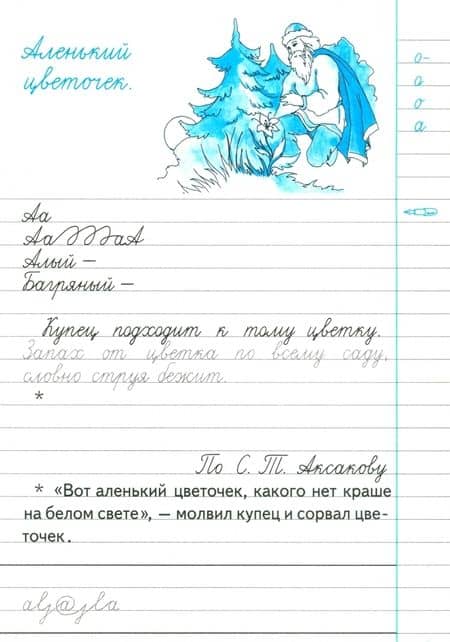 Аленький
цветочек.
о-
а
о
а
Аа
Аа аА
Алый —
Багряный —
Купец подходит к тому цветку.
Запах от цветка по всему саду,
словно струя бежит.
*
По С. Т. Аксакову
* «Вот аленький цветочек, какого нет краше
на белом свете», — молвил купец и сорвал цве-
точек.